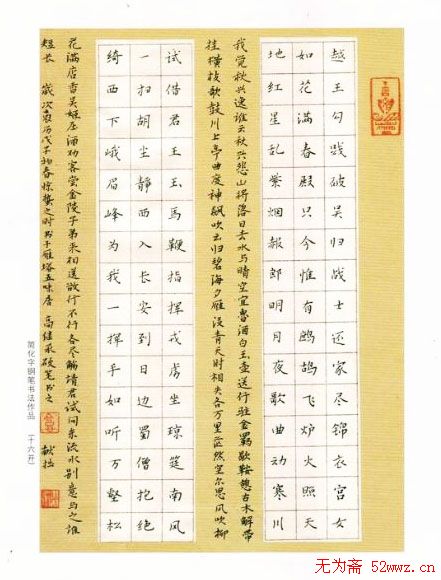 越王勾践破吴归战士还家尽锦衣宫女
如花满春殿只今惟有鹧鸪飞炉火照天
地红星乱紫烟赧郎明月夜歌曲动寒川
我觉秋兴逸谁云秋兴悲山将落日去水与晴空宜鲁酒白玉壶送行驻金羁歇鞍憩古木解带
挂横枝歌鼓川上亭曲度神飙吹云归碧海夕雁没青天时相失各万里茫然空尔思风吹柳
试借君王玉马鞭指挥戎虏坐琼筵南风
一扫胡尘静西入长安到日边蜀僧抱绿
绮西下峨眉峰为我一挥手如听万壑松
花满店香吴姬压酒劝客尝金陵子弟来相送欲行不行各尽觞请君试问东流水别意与之谁
短长 岁次农历戊子初春惊蛰之时书于雁塔五味居 高继承硬笔书之 献拙
简化字钢笔书法作品（十六开）
无为斋 52wwz.cn